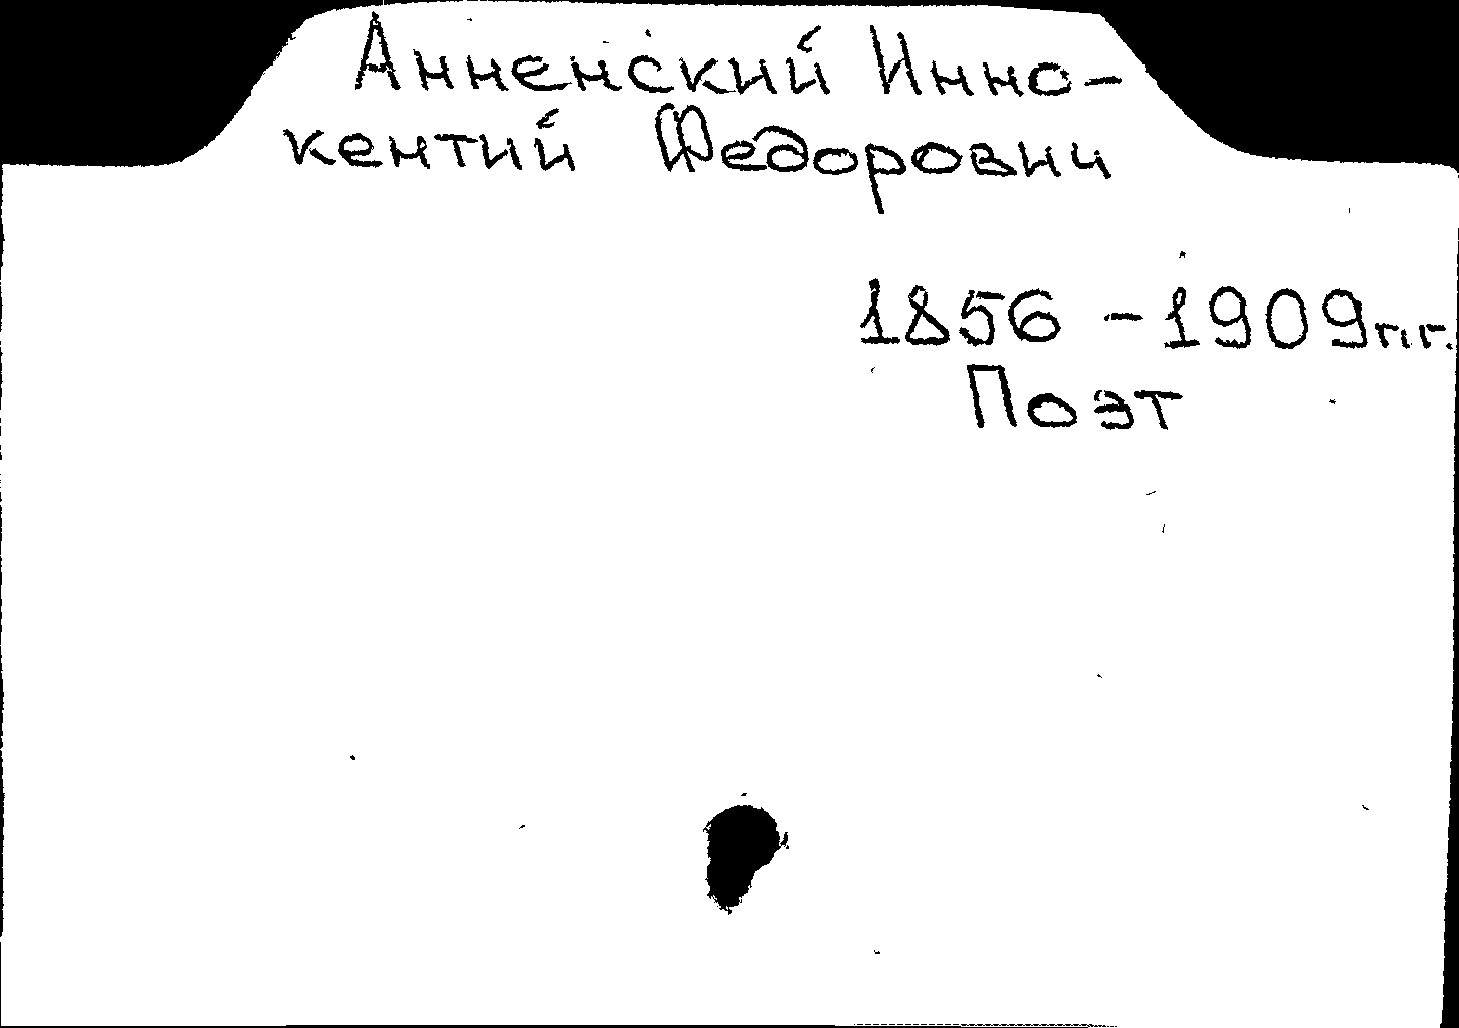 Анненский Инно-
кентий Федорович
1856 - 1909 г.г.
Поэт